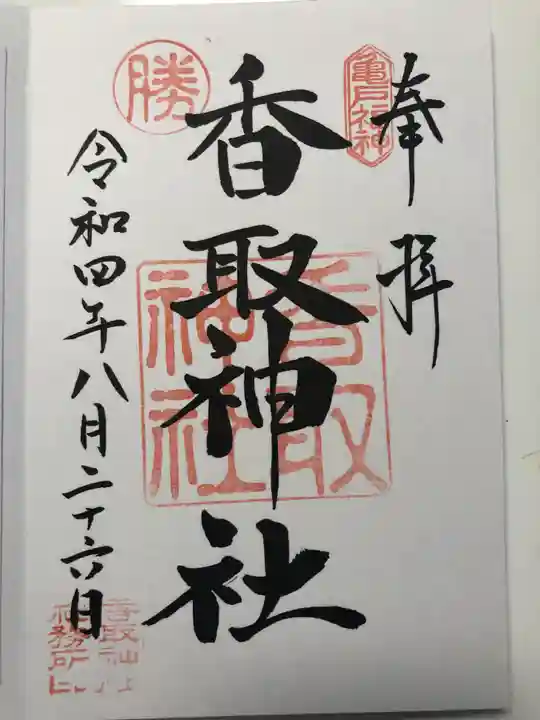 奉拝
亀戸福神
香取神社
香取
神社
勝
令和四年八月二十六日
香取神社
社務所